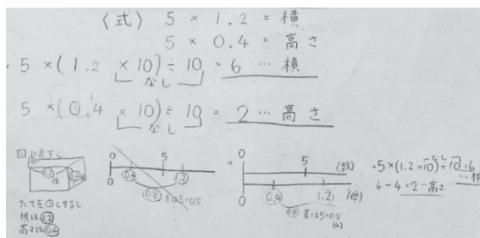 〈式〉 5 × 1.2 = 横
5 × 0.4 = 高さ
・5 ×(1.2 × 10)÷ 10 = 6 … 横
なし
5 ×(0.4 × 10)÷ 10 = 2 … 高さ
なし
たてを①とすると
横は1.2
高さは0.4
0
0
0.4
1.2
0.8
0
5
0
0.4
1.2
(倍)
0.8
・5×(1.2×10)÷10=6
なし
…横
6-4=2…高さ